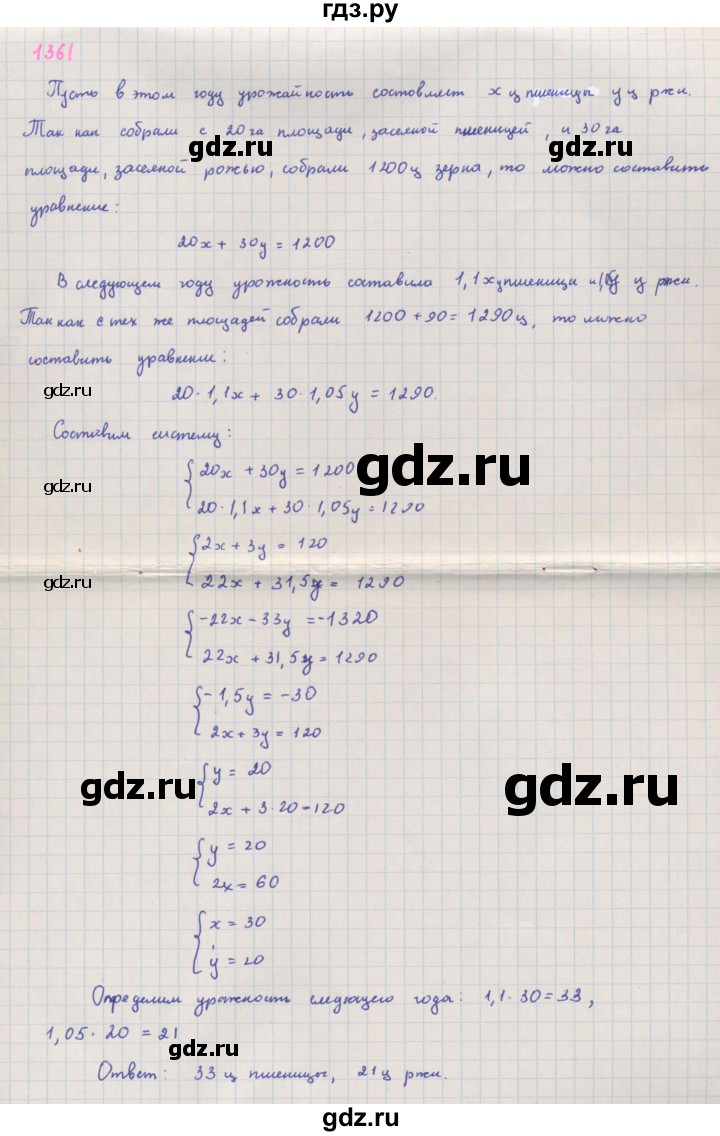 гдз.ру
1361
Пусть в этом году урожайность составляет x ц пшеницы y ц ржи.
Так как собрали с 20 га площади, засеяной пшеницей, и 30 га
площади, засеяной рожью, собрали 1200 ц зерна, то можно составить
уравнение:
20x + 30y = 1200
В следующем году урожность составила 1,1x ц пшеницы и ц ржи.
Так как с тех же площадей собрали 1200 + 90 = 1290 ц, то можно
составить уравнение:
gdz.ru
20·1,1x + 30·1,05y = 1290.
Составим систему:
20x + 30y = 1200
gdz.ru
gdz.ru
20·1,1x + 30·1,05y = 1290
2x + 3y = 120
gdz.ru
22x + 31,5y = 1290
-22x - 33y = -1320
22x + 31,5y = 1290
-1,5y = -30
2x + 3y = 120
y = 20
gdz.ru
gdz.ru
2x + 3·20 = 120
y = 20
2x = 60
x = 30
y = 20
Определим урожность следующего года: 1,1·30 = 33,
1,05·20 = 21
gdz.ru
Ответ: 33 ц пшеницы, 21 ц ржи.
gdz.ru
gdz.ru